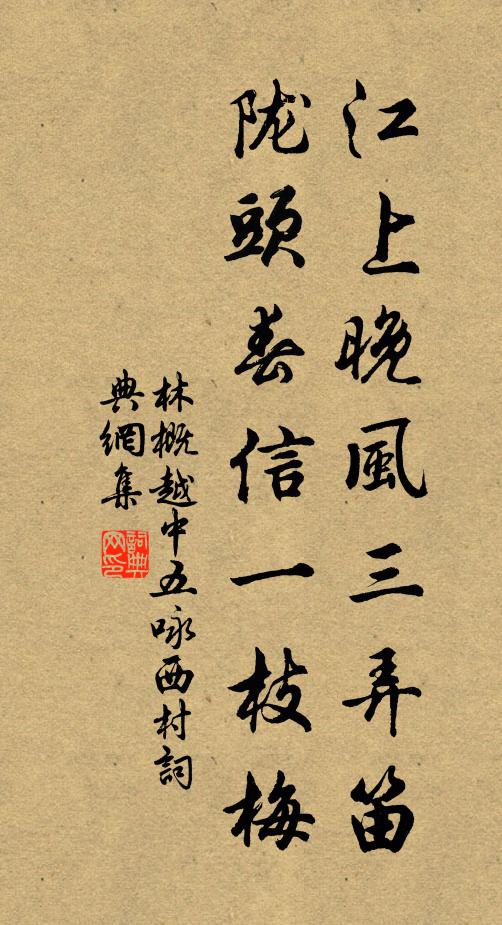 江上晚風三弄笛
陇頭春信一枝梅
林概越中五咏西村詞
典網集
詞典
网印